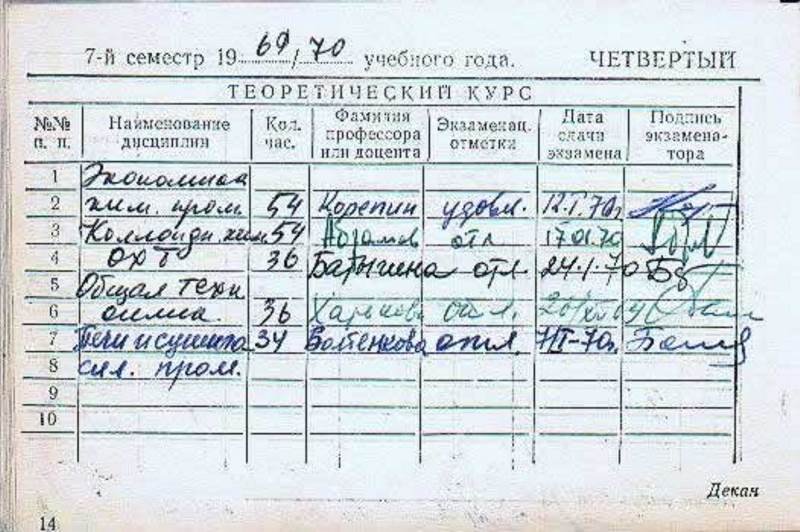 7-й семестр 1969/70 учебного года. ЧЕТВЕРТЫЙ
ТЕОРЕТИЧЕСКИЙ КУРС
№№ п. п. Наименование дисциплин Кол. час. Фамилия профессора или доцента Экзаменац. отметки Дата сдачи экзамена Подпись экзаменатора
1 Экономика
2 хим. пром. 54 Корепин удовл. 12.I.70г.
3 Коллоидн. хим. 54 Абрамов отл 17.01.70
4 ОХТ 36 Батыгина отл. 24.I.70
5 Общая техн
6 36
7 Печи и сушила 34 отл. 7/I-70г.
8 сил. пром.
9
10
Декан
14